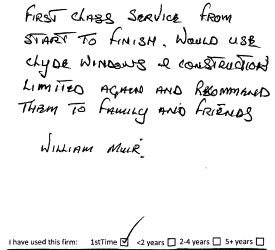 First class service from
start to finish. Would use
Clyde Windows & Construction
Limited again and recommand
them to family and friends
William Muir.
I have used this firm: 1stTime ☑ <2 years ☐ 2-4 years ☐ 5+ years ☐